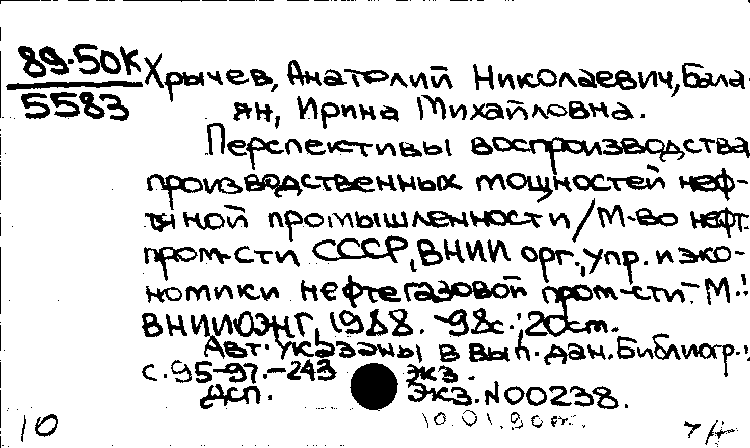 89-50К
5583
Хрычев, Анатолий Николаевич, Бала-
ян, Ирина Михайловна.
Перспективы воспроизводства
производственных мощностей неф-
тяной промышленности / М-во нефт.
пром-сти СССР, ВНИИ орг., упр. и эко-
номики нефтегазовой пром-сти. - М.:
ВНИИОЭНГ, 1988. - 98с.; 20см.
Авт. указаны в вып. дан. Библиогр.:
с. 95-97. - 243 экз.
Дсп. Экз. N00238.
10.01.90
10